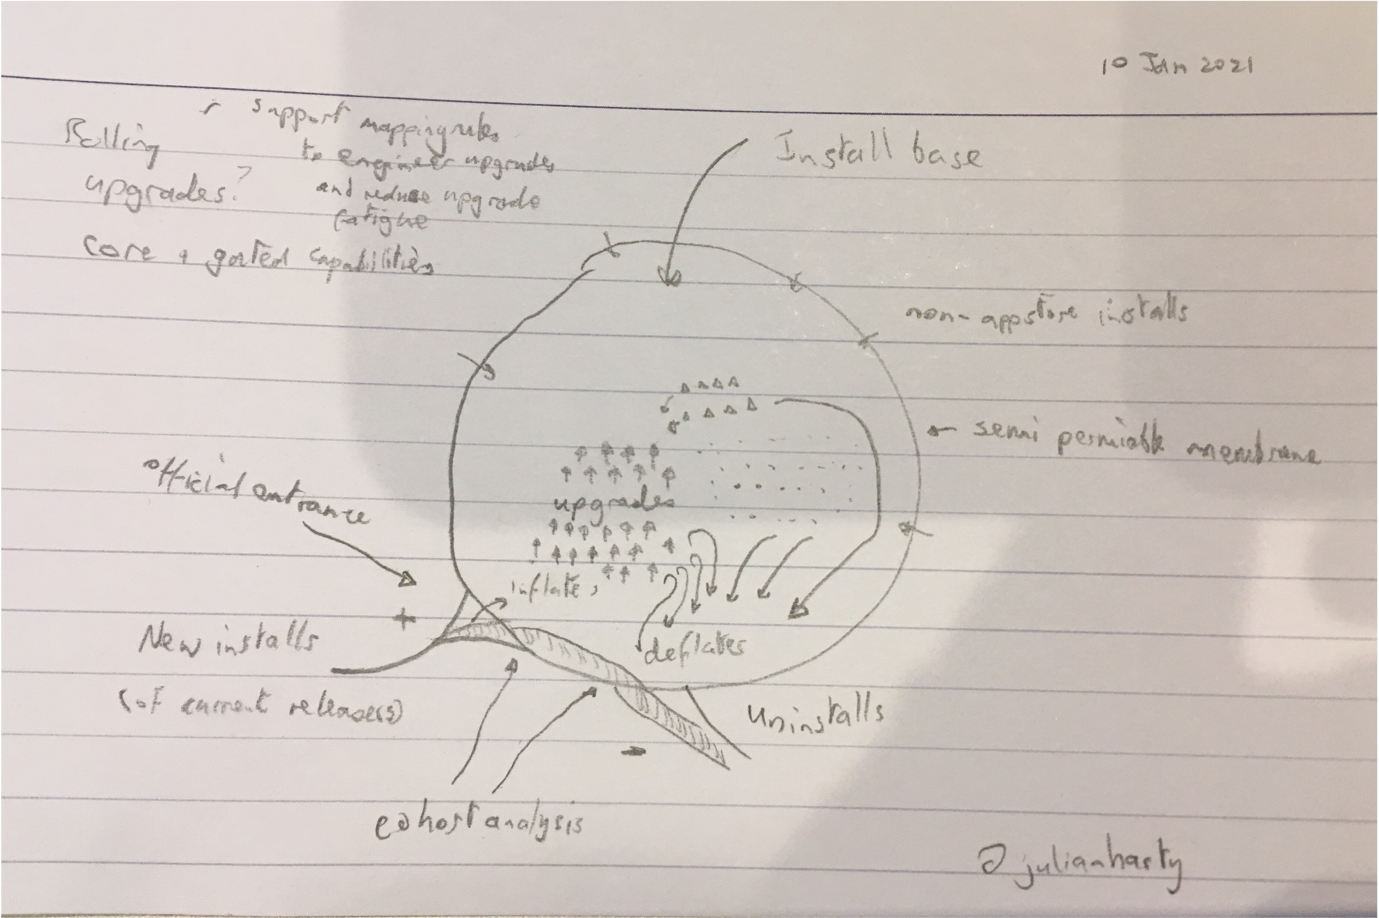 10 Jan 2021
Rolling
upgrades?
Support mapping rules
to engineer upgrades
and reduce upgrade
fatigue
core + gated capabilities
Install base
non-appstore installs
semi permiable membrane
official entrance
upgrades
inflates
deflates
+
New installs
(of current release(s))
Uninstalls
-
cohost analysis
@julianharty